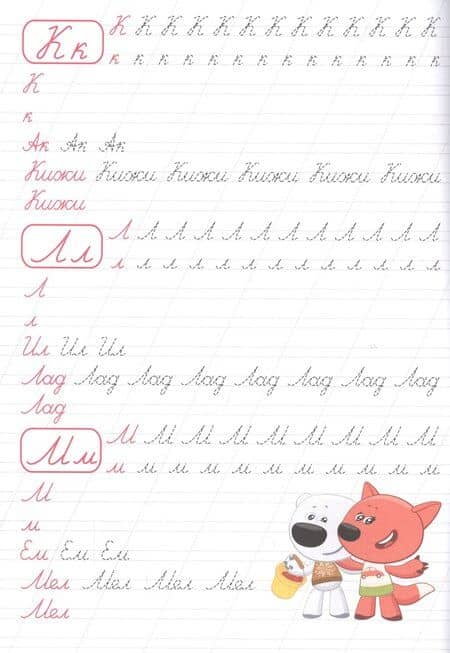 К к К К К К К К К К К К К К К
к к к к к к к к к к к к к к
К
к
Ак Ак Ак
Кижи Кижи Кижи Кижи Кижи Кижи
Кижи
Л л Л Л Л Л Л Л Л Л Л Л Л Л Л
л л л л л л л л л л л л л
Л
л
Ил Ил Ил
Лад Лад Лад Лад Лад Лад Лад Лад
Лад
М м М М М М М М М М М М
м м м м м м м м м м м
М
м
Ем Ем Ем
Мел Мел Мел Мел
Мел